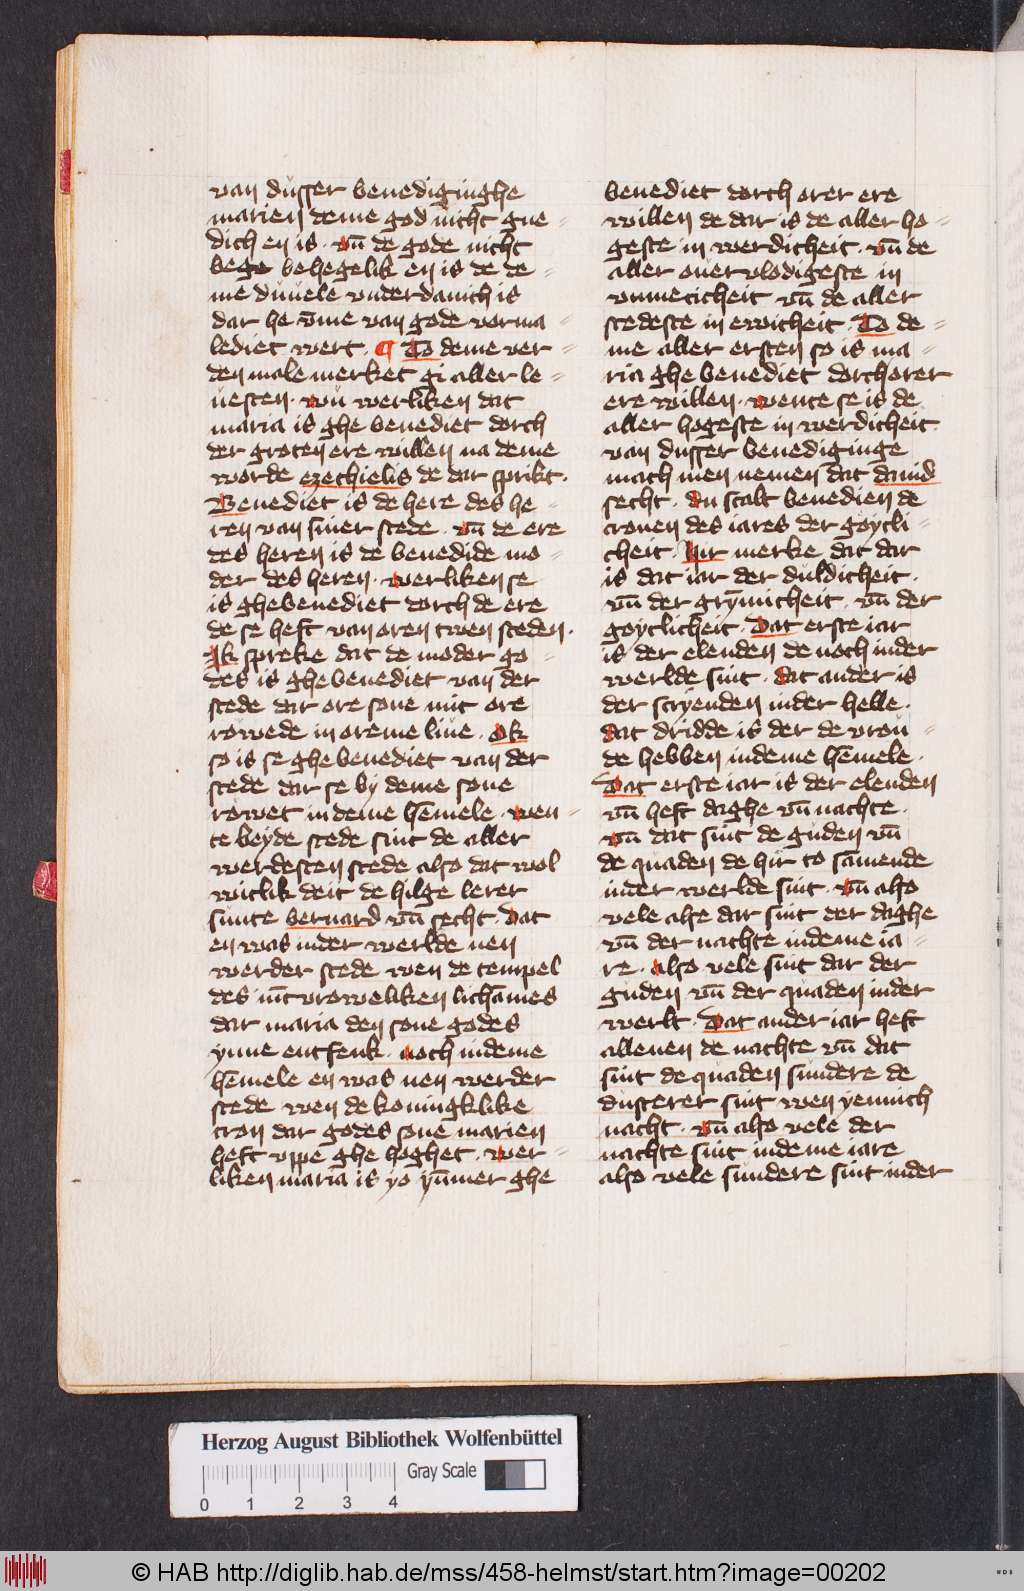 van dusser benediginghe
marien deme god nicht gne=
dich en is · vn̄ de gode nicht
bego behegelik en is de de=
me duuele vnderdanich is
dar he v̄me van gode vorma=
lediet wert · ¶ To deme ver=
den male merket gi aller le=
uesten · wu werliken dat
maria is ghe benediet dorch
der groten ere willen na deme
worde ezechielis de dar sprikt ·
Benediet is de here des he=
ren van siner stede · vn̄ de ere
des heren is de benedide mo=
der des heren · werliken se
is ghebenediet dorch de ere
de se heft van oren twen steden ·
Ik spreke dat de moder go=
des is ghebenediet van der
stede dar ore sone mit ore
rowede in oreme liue · Ok
so is se ghebenediet van der
stede dar se by deme sone
rowet in deme hēmele · wen=
te beyde stede sint de aller
werdesten stede also dat wol
witlik deit de hilge lerer
sunte bernard vn̄ secht · Dat
en was in der werlde nen
werder stede wen de tempel
des iūcvroweliken lichāmes
dar maria den sone godes
ynne entfenk · noch in deme
hēmele en was nen werder
stede wen de koningklike
tron dar godes sone marien
heft vppe ghe hoghet · wer=
liken maria is yo ȳmer ghe
benediet dorch orer ere
willen de dar is de aller ho=
geste in werdicheit · vn̄ de
aller ouervlodigeste in
vnmeticheit vn̄ de aller
stedeste in ewicheit · To de=
me aller ersten so is ma=
ria ghe benediet dorch orer
ere willen · wente se is de
aller hogeste in werdicheit
van dusser benediginge
mach men nemen dat dauid
secht · du scalt benedien de
cronen des iares der goytli=
cheit · Hir merke dat dar
is dat iar der duldicheit ·
vn̄ der grȳmicheit · vn̄ der
goytlicheit · Dat erste iar
is der elenden de noch in der
werlde sint · dat ander is
der scryenden in der helle ·
dat dridde is der de vrou=
de hebben in deme hēmele ·
Dat erste iar is der elenden
vn̄ heft daghe vn̄ nachte ·
vn̄ dat sint de guden vn̄
de quaden de hir to sāmende
in der werlde sint · vn̄ also
vele alse dar sint der daghe
vn̄ der nachte in deme ia=
re · also vele sint dar der
guden vn̄ der quaden in der
werlt · Dat ander iar heft
allenen de nachte vn̄ dat
sint de quaden sundere de
dusterer sint wen yennich
nacht · vn̄ also vele der
nachte sint in deme iare
also vele sundere sint in der
Herzog August Bibliothek Wolfenbüttel
Gray Scale
0 1 2 3 4
© HAB http://diglib.hab.de/mss/458-helmst/start.htm?image=00202